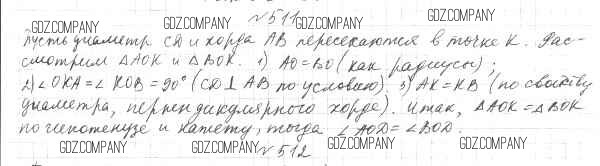 GDZ.COMPANY
№511
GDZ.COMPANY GDZ.COMPANY
Пусть диаметр CD и хорда AB пересекаются в точке K. Рас-
смотрим △AOK и △BOK. 1) AO=BO (как радиусы);
2) ∠OKA=∠KOB=90° (CD⊥AB по условию). 3) AK=KB (по свойству
диаметра, перпендикулярного хорде). Итак, △AOK=△BOK
по гипотенузе и катету, тогда ∠AOD=∠BOD.
GDZ.COMPANY GDZ.COMPANY GDZ.COMPANY
№512